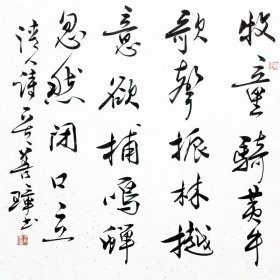 牧童骑黄牛
歌声振林樾
意欲捕鸣蝉
忽然闭口立
清人诗 吕善璋书